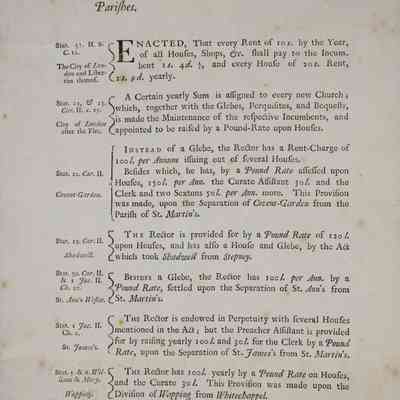 Parishes.
Stat. 37. H. 8.
C. 12.
The City of London
and Liberties
thereof.
ENACTED, That every Rent of 10s. by the Year,
of all Houses, Shops, &c. shall pay to the Incumbent
1s. 4d. ½, and every House of 20s. Rent,
2s. 9d. yearly.
Stat. 22, & 23.
Car. II. c. 15.
City of London
after the Fire.
A Certain yearly Sum is assigned to every new Church;
which, together with the Glebes, Perquisites, and Bequests,
is made the Maintenance of the respective Incumbents, and
appointed to be raised by a Pound-Rate upon Houses.
Stat. 12. Car. II.
Covent-Garden.
INSTEAD of a Glebe, the Rector has a Rent-Charge of
100l. per Annum issuing out of several Houses.
Besides which, he has, by a Pound Rate assessed upon
Houses, 150l. per Ann. the Curate Assistant 50l. and the
Clerk and two Sextons 50l. per Ann. more. This Provision
was made, upon the Separation of Covent-Garden from the
Parish of St. Martin's.
Stat. 22. Car. II.
Shadwell.
THE Rector is provided for by a Pound Rate of 120l.
upon Houses, and has also a House and Glebe, by the Act
which took Shadwell from Stepney.
Stat. 30. Car. II.
& 1 Jac. II.
Ch. 20.
St. Ann's Westm.
BESIDES a Glebe, the Rector has 100l. per Ann. by a
Pound Rate, settled upon the Separation of St. Ann's from
St. Martin's.
Stat. 1 Jac. II.
Ch. 2.
St. James's.
THE Rector is endowed in Perpetuity with several Houses
mentioned in the Act; but the Preacher Assistant is provided
for by raising yearly 100l. and 30l. for the Clerk by a Pound
Rate, upon the Separation of St. James's from St. Martin's.
Stat. 5 & 6. William
& Mary.
Wapping.
THE Rector has 100l. yearly by a Pound Rate on Houses,
and the Curate 30l. This Provision was made upon the
Division of Wapping from Whitechappel.